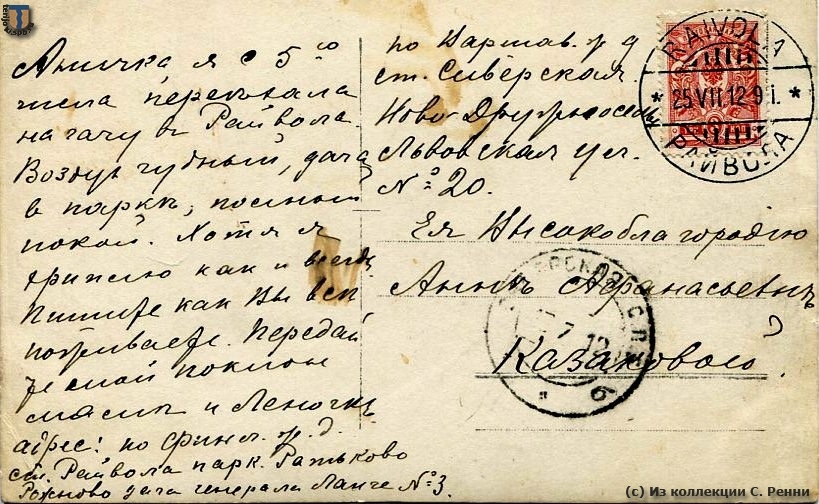 Аничка я с 5го
числа переѣхала
на дачу в Райвола.
Воздух чудный, дача
в паркѣ, полный
покой. Хотя я
гриплю как и всегда
Пишите как Вы всѣ
поживаете. Передай
те мой поклон
и Леночкѣ
адрес: по Финл. ж. д.
ст. Райвола парк. Ратьково
Рожново дача генерала Ланге № 3.
по Варшав. ж д
ст. Сиверская
Ново Дружносель
Львовская ул.
№ 20.
Ея Высокоблагородию
Аннѣ Афанасьевнѣ
Казаковой
RAIVOLA
* 25.VII.12 9 I. *
РАЙВОЛА
7 12
б
(c) Из коллекции С. Ренни